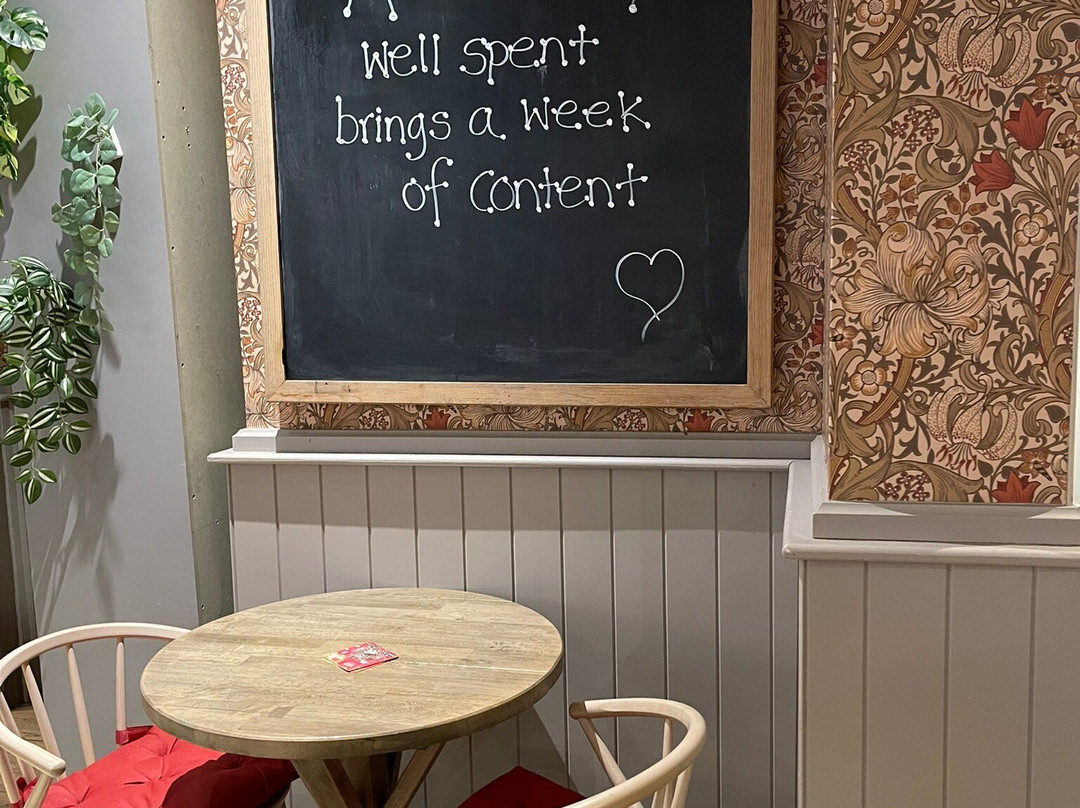 well spent
brings a week
of content